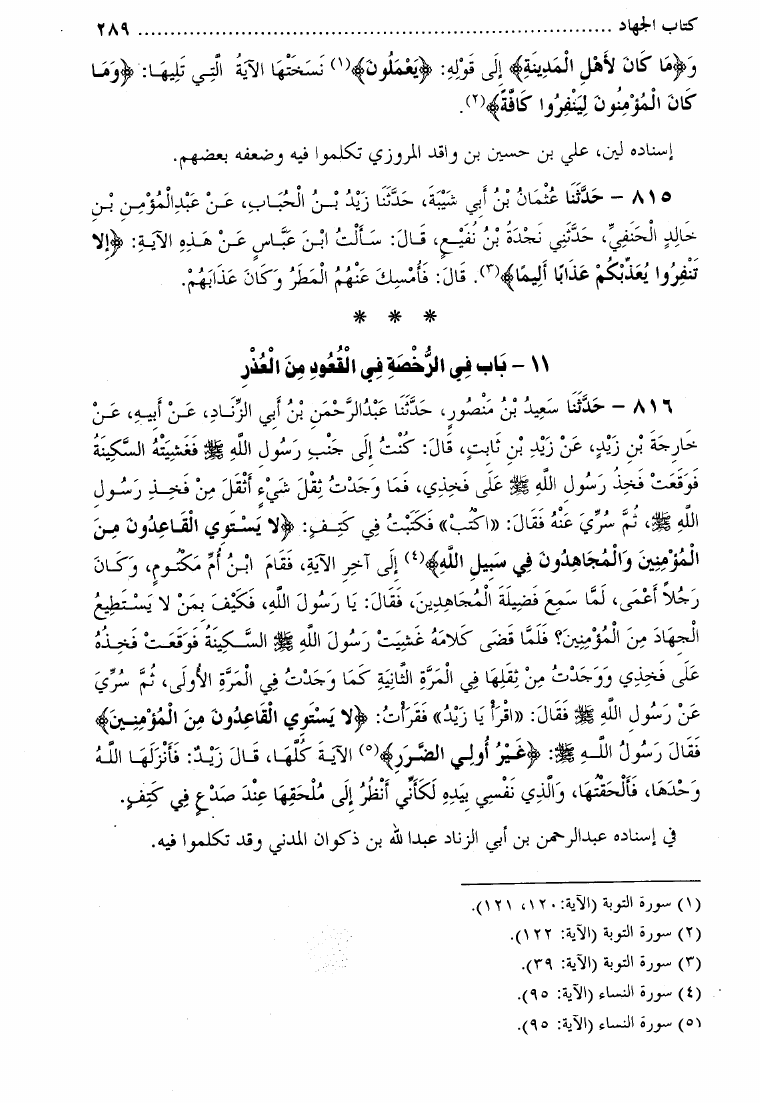 كتاب الجهاد .......................................................................... ٢٨٩
وَ﴿مَا كَانَ لأَهْلِ الْمَدِينَةِ﴾ إِلَى قَوْلِهِ: ﴿يَعْمَلُونَ﴾(١) نَسَخَتْهَا الآيَةُ الَّتِي تَلِيهَا: ﴿وَمَا
كَانَ الْمُؤْمِنُونَ لِيَنْفِرُوا كَافَّةً﴾(٢).
إسناده لين، علي بن حسين بن واقد المروزي تكلموا فيه وضعفه بعضهم.
٨١٥ – حَدَّثَنَا عُثْمَانُ بْنُ أَبِي شَيْبَةَ، حَدَّثَنَا زَيْدُ بْنُ الْحُبَابِ، عَنْ عَبْدِالْمُؤْمِنِ بْنِ
خَالِدٍ الْحَنَفِيِّ، حَدَّثَنِي نَجْدَةُ بْنُ نُفَيْعٍ، قَالَ: سَأَلْتُ ابْنَ عَبَّاسٍ عَنْ هَذِهِ الآيَةِ: ﴿إِلا
تَنْفِرُوا يُعَذِّبْكُمْ عَذَابًا أَلِيمًا﴾(٣). قَالَ: فَأُمْسِكَ عَنْهُمُ الْمَطَرُ وَكَانَ عَذَابَهُمْ.
* * *
١١ – بَاب فِي الرُّخْصَةِ فِي الْقُعُودِ مِنَ الْعُذْرِ
٨١٦ – حَدَّثَنَا سَعِيدُ بْنُ مَنْصُورٍ، حَدَّثَنَا عَبْدُالرَّحْمَنِ بْنُ أَبِي الزِّنَادِ، عَنْ أَبِيهِ، عَنْ
خَارِجَةَ بْنِ زَيْدٍ، عَنْ زَيْدِ بْنِ ثَابِتٍ، قَالَ: كُنْتُ إِلَى جَنْبِ رَسُولِ اللَّهِ ﷺ فَغَشِيَتْهُ السَّكِينَةُ
فَوَقَعَتْ فَخِذُ رَسُولِ اللَّهِ ﷺ عَلَى فَخِذِي، فَمَا وَجَدْتُ ثِقْلَ شَيْءٍ أَثْقَلَ مِنْ فَخِذِ رَسُولِ
اللَّهِ ﷺ، ثُمَّ سُرِّيَ عَنْهُ فَقَالَ: «اكْتُبْ» فَكَتَبْتُ فِي كَتِفٍ: ﴿لا يَسْتَوِي الْقَاعِدُونَ مِنَ
الْمُؤْمِنِينَ وَالْمُجَاهِدُونَ فِي سَبِيلِ اللَّهِ﴾(٤) إِلَى آخِرِ الآيَةِ، فَقَامَ ابْنُ أُمِّ مَكْتُومٍ، وَكَانَ
رَجُلاً أَعْمَى، لَمَّا سَمِعَ فَضِيلَةَ الْمُجَاهِدِينَ، فَقَالَ: يَا رَسُولَ اللَّهِ، فَكَيْفَ بِمَنْ لا يَسْتَطِيعُ
الْجِهَادَ مِنَ الْمُؤْمِنِينَ؟ فَلَمَّا قَضَى كَلامَهُ غَشِيَتْ رَسُولَ اللَّهِ ﷺ السَّكِينَةُ فَوَقَعَتْ فَخِذُهُ
عَلَى فَخِذِي وَوَجَدْتُ مِنْ ثِقَلِهَا فِي الْمَرَّةِ الثَّانِيَةِ كَمَا وَجَدْتُ فِي الْمَرَّةِ الأُولَى، ثُمَّ سُرِّيَ
عَنْ رَسُولِ اللَّهِ ﷺ فَقَالَ: «اقْرَأْ يَا زَيْدُ» فَقَرَأْتُ: ﴿لا يَسْتَوِي الْقَاعِدُونَ مِنَ الْمُؤْمِنِينَ﴾
فَقَالَ رَسُولُ اللَّهِ ﷺ: ﴿غَيْرُ أُولِي الضَّرَرِ﴾(٥) الآيَةَ كُلَّهَا، قَالَ زَيْدٌ: فَأَنْزَلَهَا اللَّهُ
وَحْدَهَا، فَأَلْحَقْتُهَا، وَالَّذِي نَفْسِي بِيَدِهِ لَكَأَنِّي أَنْظُرُ إِلَى مُلْحَقِهَا عِنْدَ صَدْعٍ فِي كَتِفٍ.
في إسناده عبدالرحمن بن أبي الزناد عبدا لله بن ذكوان المدني وقد تكلموا فيه.
(١) سورة التوبة (الآية: ١٢٠، ١٢١).
(٢) سورة التوبة (الآية: ١٢٢).
(٣) سورة التوبة (الآية: ٣٩).
(٤) سورة النساء (الآية: ٩٥).
(٥) سورة النساء (الآية: ٩٥).